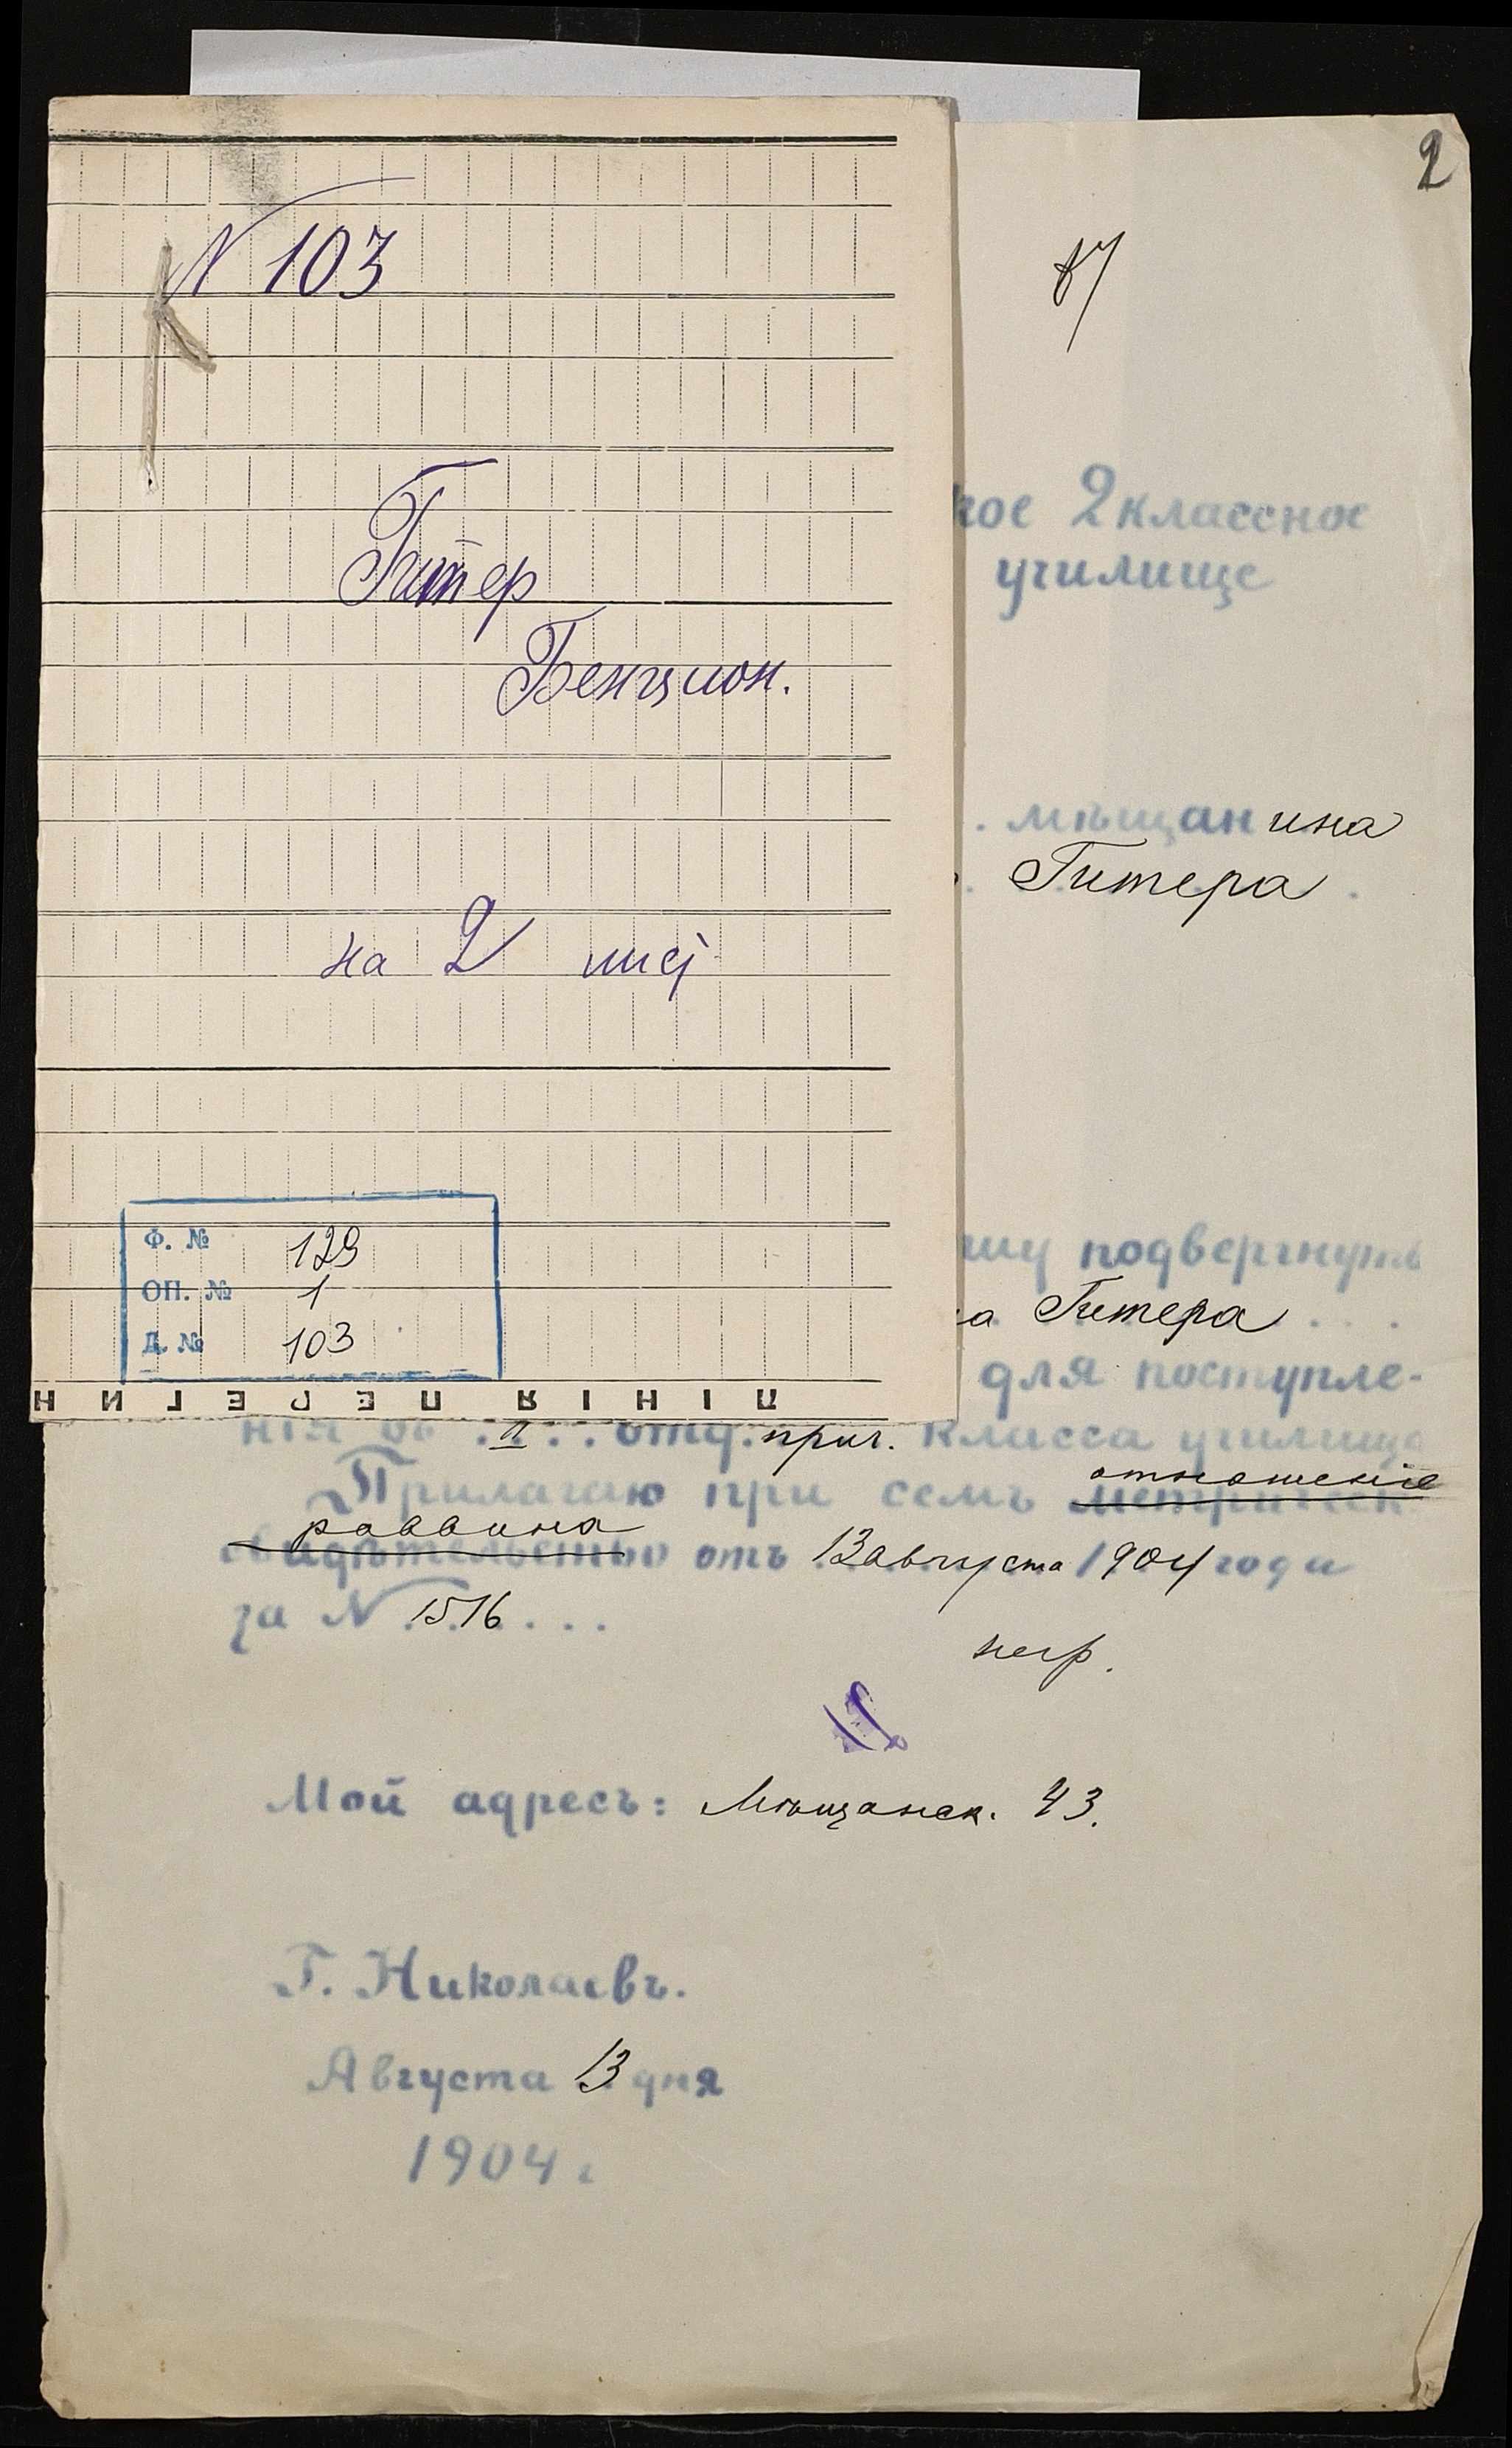 N 103
Гитер
Бенцион.
на 2 лист
Ф. № 129
ОП. № 1
Д. № 103
2
кое 2 классное
училище
. мѣщанина
Гитера .
шу подвергнуть
а Гитера . . .
для поступле-
нія въ . II . . отд. приг. класса училища
отношеніе
Прилагаю при семъ метрическ
раввина
свидѣтельство отъ 13 августа 1904 года
за N 1516 . . .
Мой адресъ: Мѣщанск. 43.
Г. Николаевъ.
Августа 13 дня
1904 г